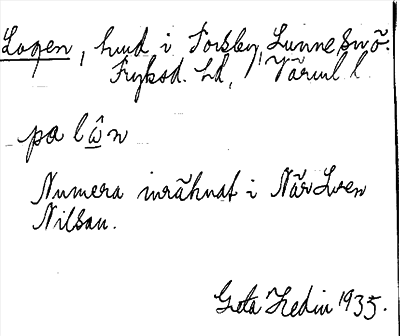 Logen, hmd i Torsby, Lunne sn ö.
Fryksd. hd, Värml l.
pa l ω̂ n
Numera inräknat i När Sven
Nilsau.
Greta Hedin 1935.